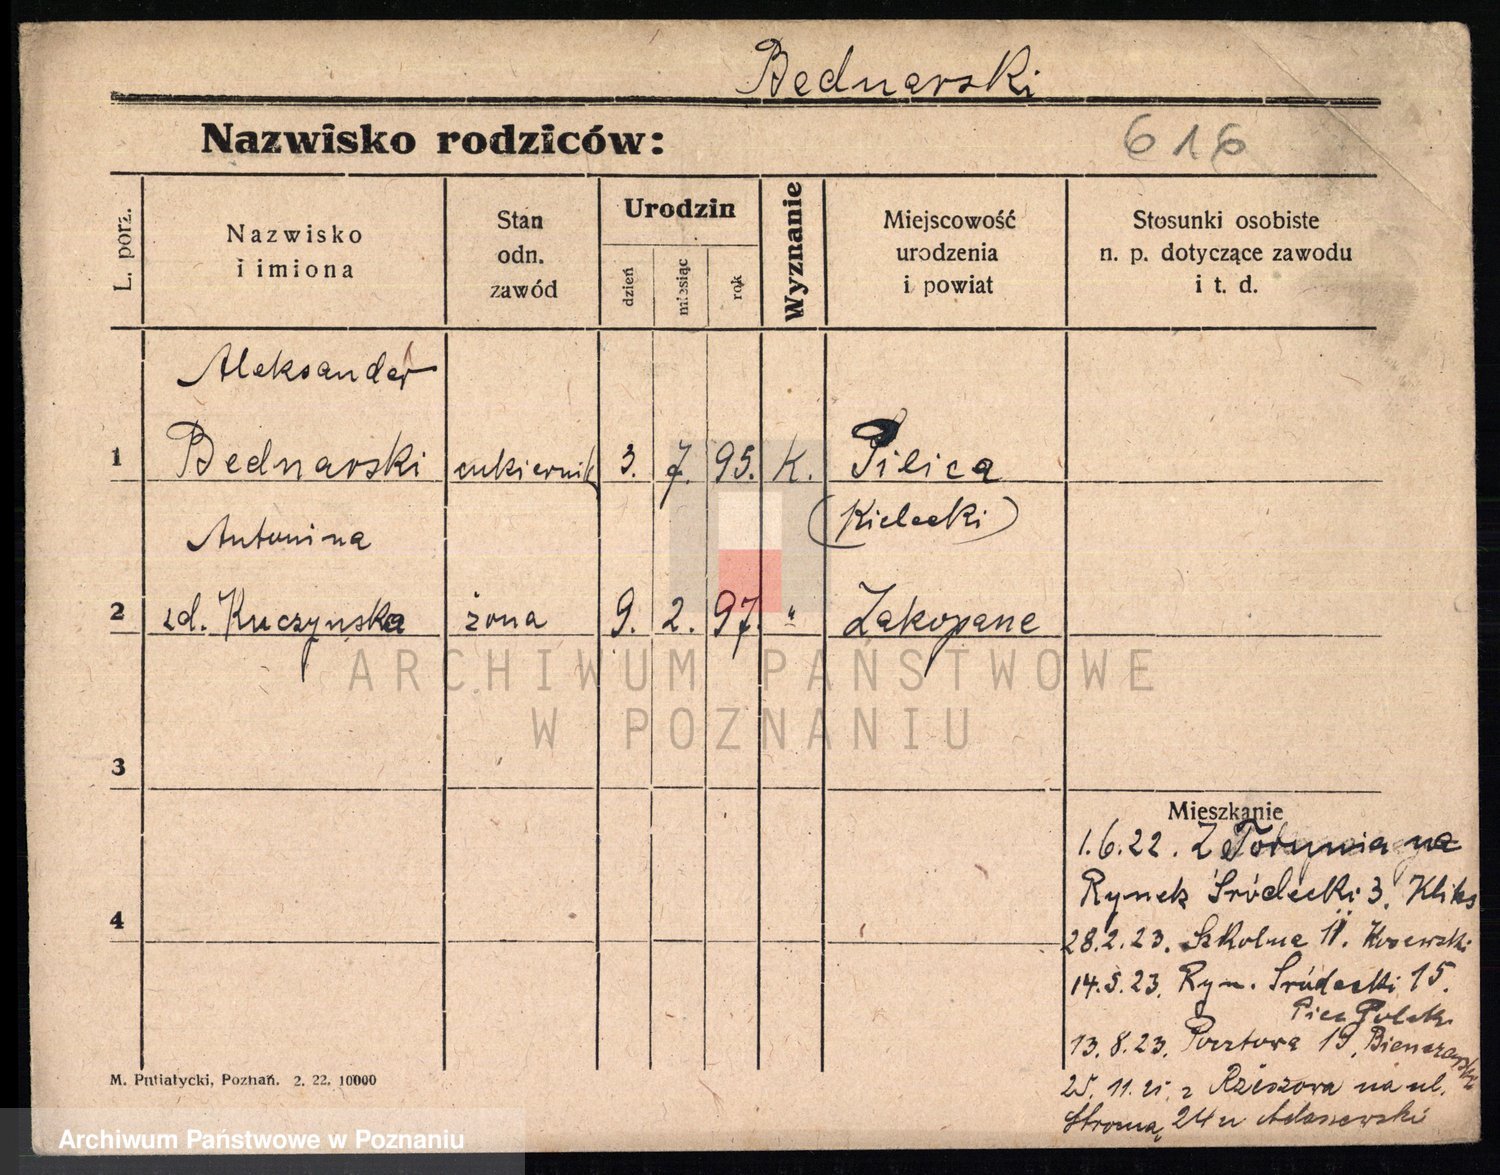 Bednarski
Nazwisko rodziców:
616
L. porz.
Nazwisko
i imiona
Stan
odn.
zawód
Urodzin
dzień
miesiąc
rok
Wyznanie
Miejscowość
urodzenia
i powiat
Stosunki osobiste
n. p. dotyczące zawodu
i t. d.
Aleksander
1 Bednarski cukiernik 3. 7. 95. K. Pilica
(Kielecki)
Antonina
2 zd. Kuczynska żona 9. 2. 97. " Zakopane
ARCHIWUM PAŃSTWOWE
W POZNANIU
3
Mieszkanie
1.6.22. Z Torunia na
Rynek Śródecki 3. Kliks
4
28.2.23. Szkolna 11. Kosewski
14.5.23. Ryn. Śródecki 15.
13.8.23. Pocztowa 19,
25.11.25. z Rzeszowa na ul.
Stromą 24 u Adaszewski
M. Putiatycki, Poznań. 2. 22. 10000
Archiwum Państwowe w Poznaniu